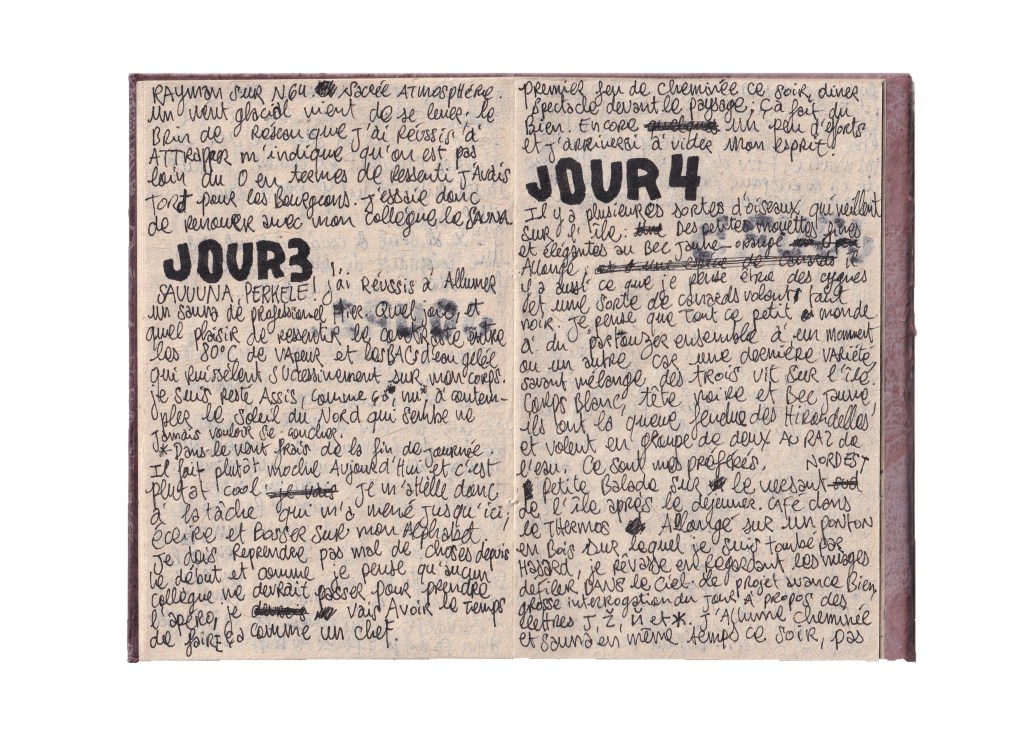 RAYMAN SUR N64. Sacrée ATMOSPHÈRE.
Un vent glacial vient de se lever. Le
Brin de Réseau que j'ai Réussis à
ATTRAPER m'indique qu'on est pas
loin du 0 en termes de ressenti. J'AVAIS
TORT pour les Bourgeons. J'essaie donc
de renouer avec mon collègue le SAUNA.
JOUR3
J'ai Réussis à Allumer
SAUUUNA, PERKELE!
un sauna de professionnel Hier. Quel joie et
quel plaisir de ressentir le contraste entre
les 80°C de vapeur et les BACs d'eau gelée
qui Ruissèlent successivement sur mon corps.
Je suis resté Assis, comme ça*, nu*, à contem-
pler le soleil du Nord qui semble ne
jamais vouloir se coucher.
*Dans le vent frais de la fin de journée.
Il fait plutôt moche Aujourd'Hui et c'est
plutôt cool. je vais Je m'attèle donc
à la tâche qui m'a mené jusqu'ici,
écrire et Bosser sur mon Alphabet.
Je dois Reprendre pas mal de choses depuis
le début et comme je pense qu'aucun
collègue ne devrait passer pour prendre
l'apéro, je devrais vais Avoir le Temps
de faire ça comme un chef.
premier feu de cheminée ce soir, diner
spectacle devant le paysage; ça fait du
Bien. Encore quelques un peu d'éforts
et j'arriverai à vider mon esprit.
JOUR4
Il y a plusieures sortes d'oiseaux qui veillent
sur l'île: Des petites mouettes fines
et élégantes au Bec Jaune-orange
Allongé, et d'une espèce de canards
il y a aussi ce que je pense être des cygnes
et une sorte de canards volant tout
noir. Je pense que tout ce petit monde
a du partouzer ensemble à un moment
ou un autre car une dernière variété,
savant mélange des trois vit sur l'île.
Corps Blanc, tête noire et Bec jaune,
ils ont la queue fendue des Hirondelles
et volent en groupe de deux Au RAZ de
l'eau. Ce sont mes préférés. NORDEST
Petite Balade sur le versant sud
de l'île après le déjeuner. Café dans
le THERMOS Allongé sur un ponton
en bois sur lequel je suis tombé par
Hasard, je rêvasse en regardant les nuages
défiler DANS le ciel. Le projet avance Bien,
grosse interrogation du jour à propos des
lettres J, Ž, Й et Ж. J'Allume cheminée
et sauna en même temps ce soir, pas